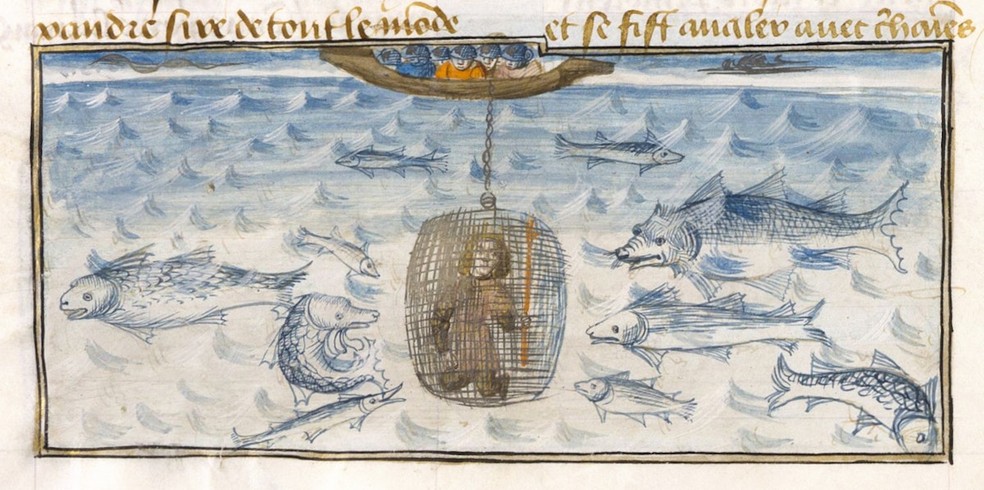 xandre sire de tout le mõde
et se fist avaler avec chaiẽes